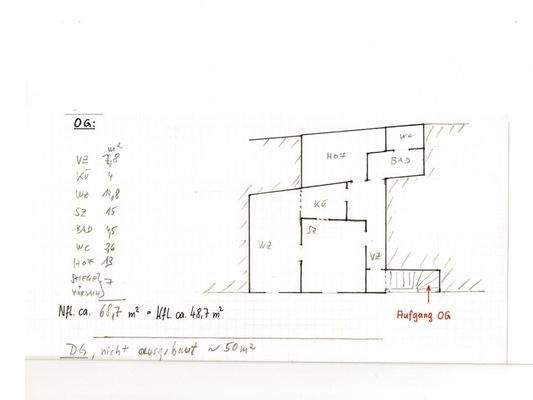 OG:
m²
VZ 7,8
KÜ 4
WZ 14,8
SZ 15
BAD 4,5
WC 2,6
HOF 13
STIEGE 7
Nfl. ca. 68,7 m² = Kfl. ca. 48,7 m²
DG, nicht ausgebaut ~ 50 m²
WC
HOF
BAD
KÜ
SZ
WZ
VZ
Aufgang OG